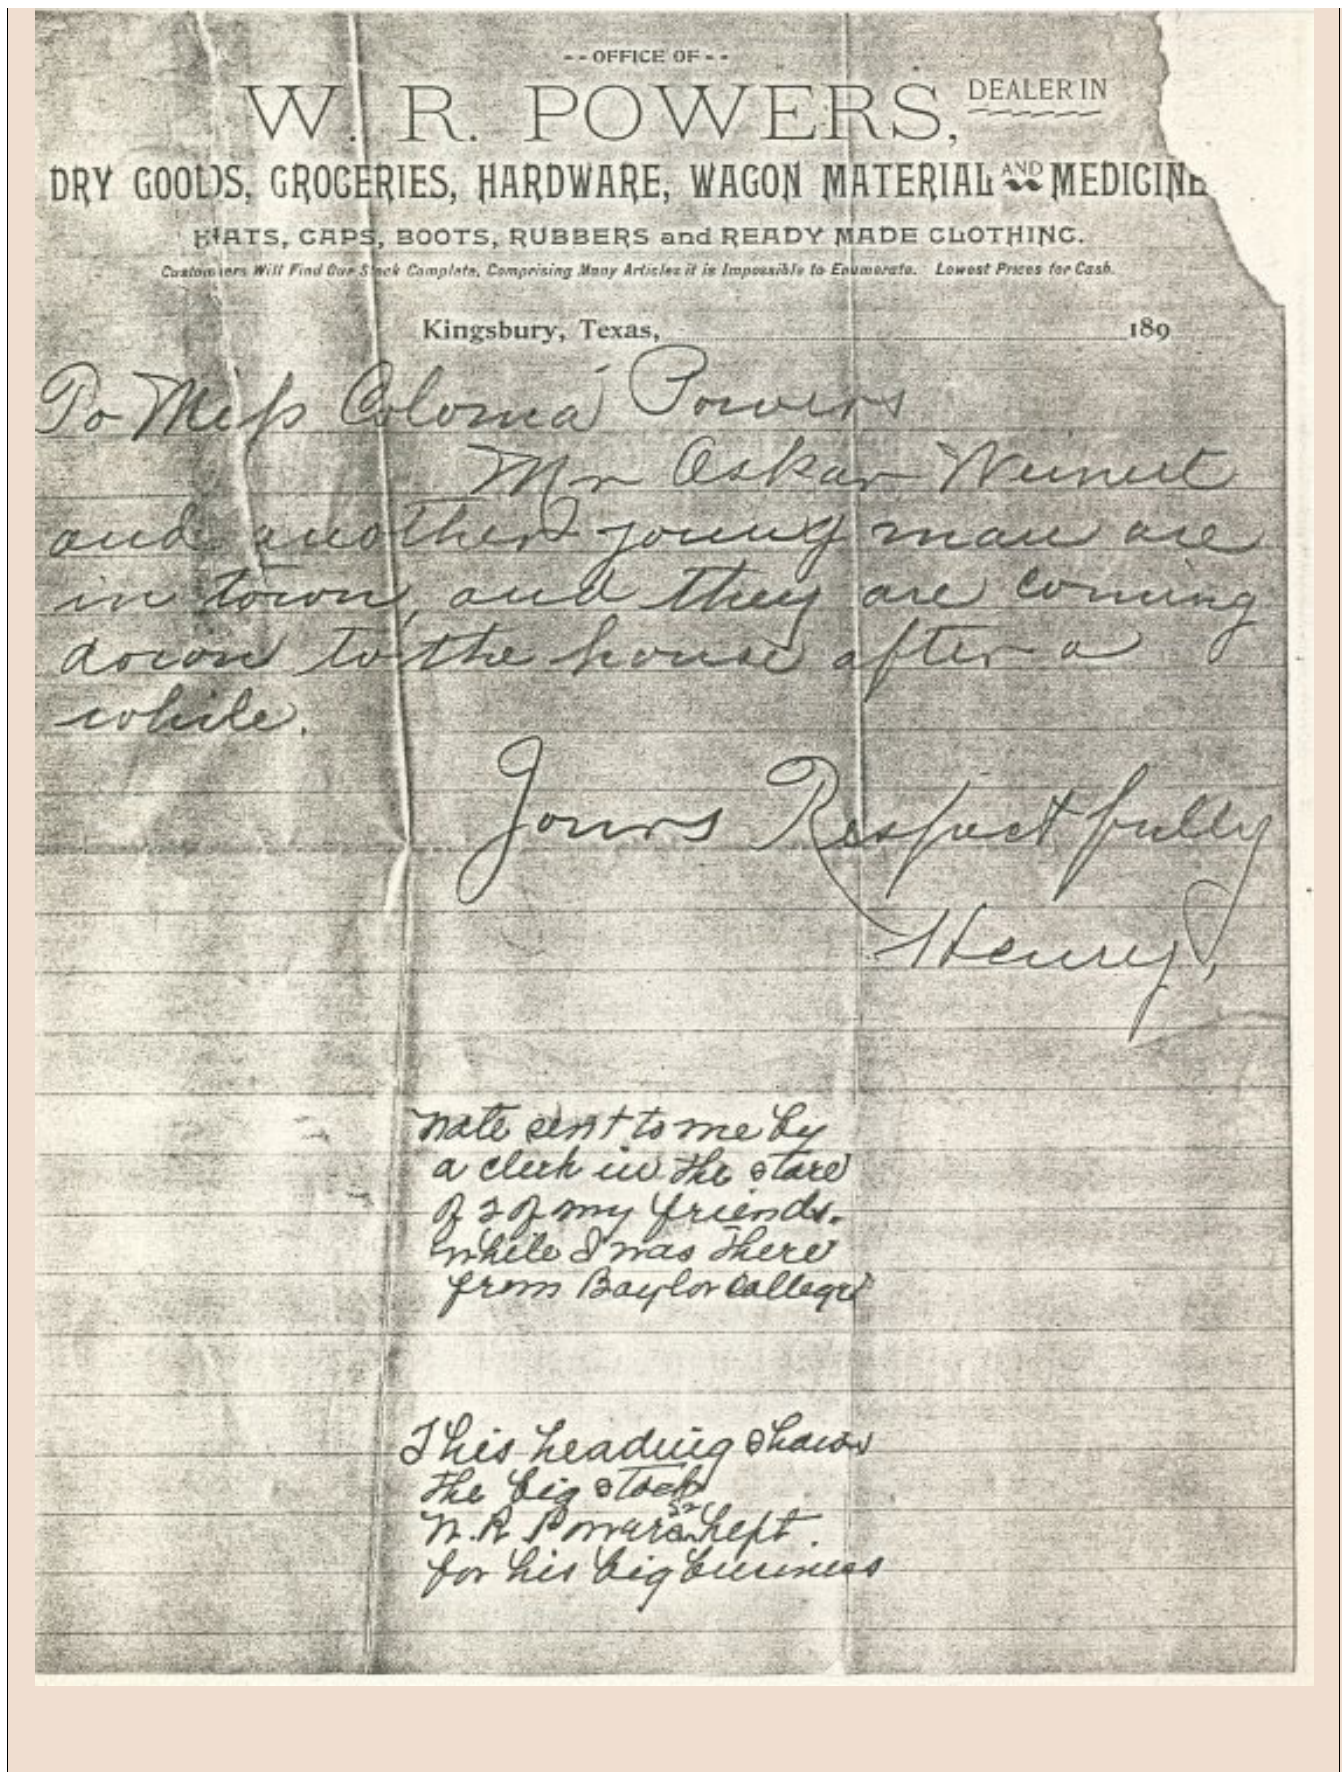 --OFFICE OF--
W. R. POWERS, DEALER IN
DRY GOODS, GROCERIES, HARDWARE, WAGON MATERIAL AND MEDICINE
HATS, CAPS, BOOTS, RUBBERS and READY MADE CLOTHING.
Customers Will Find Our Stock Complete, Comprising Many Articles it is Impossible to Enumerate. Lowest Prices for Cash.
Kingsbury, Texas, 189
To Miss Coloma Powers
Mr Oskar Weinert
and another young man are
in town, and they are coming
down to the house after a
while.
Yours Respectfully
Henry,
Note sent to me by
a clerk in the store
of 2 of my friends.
While I was there
from Baylor College
This heading shows
the big stock
W. R. Powers Sr kept
for his big business